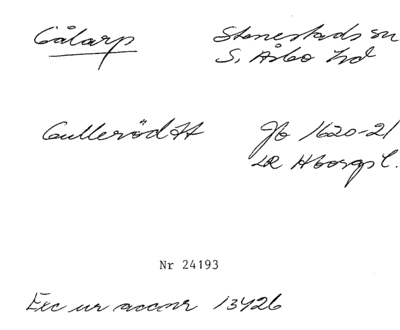 Gålarp Stenestads sn
S. Åsbo hd
Gullerödtt Jb 1620-21
LR Hborgs l.
Nr 24193
Exc ur accnr 13426